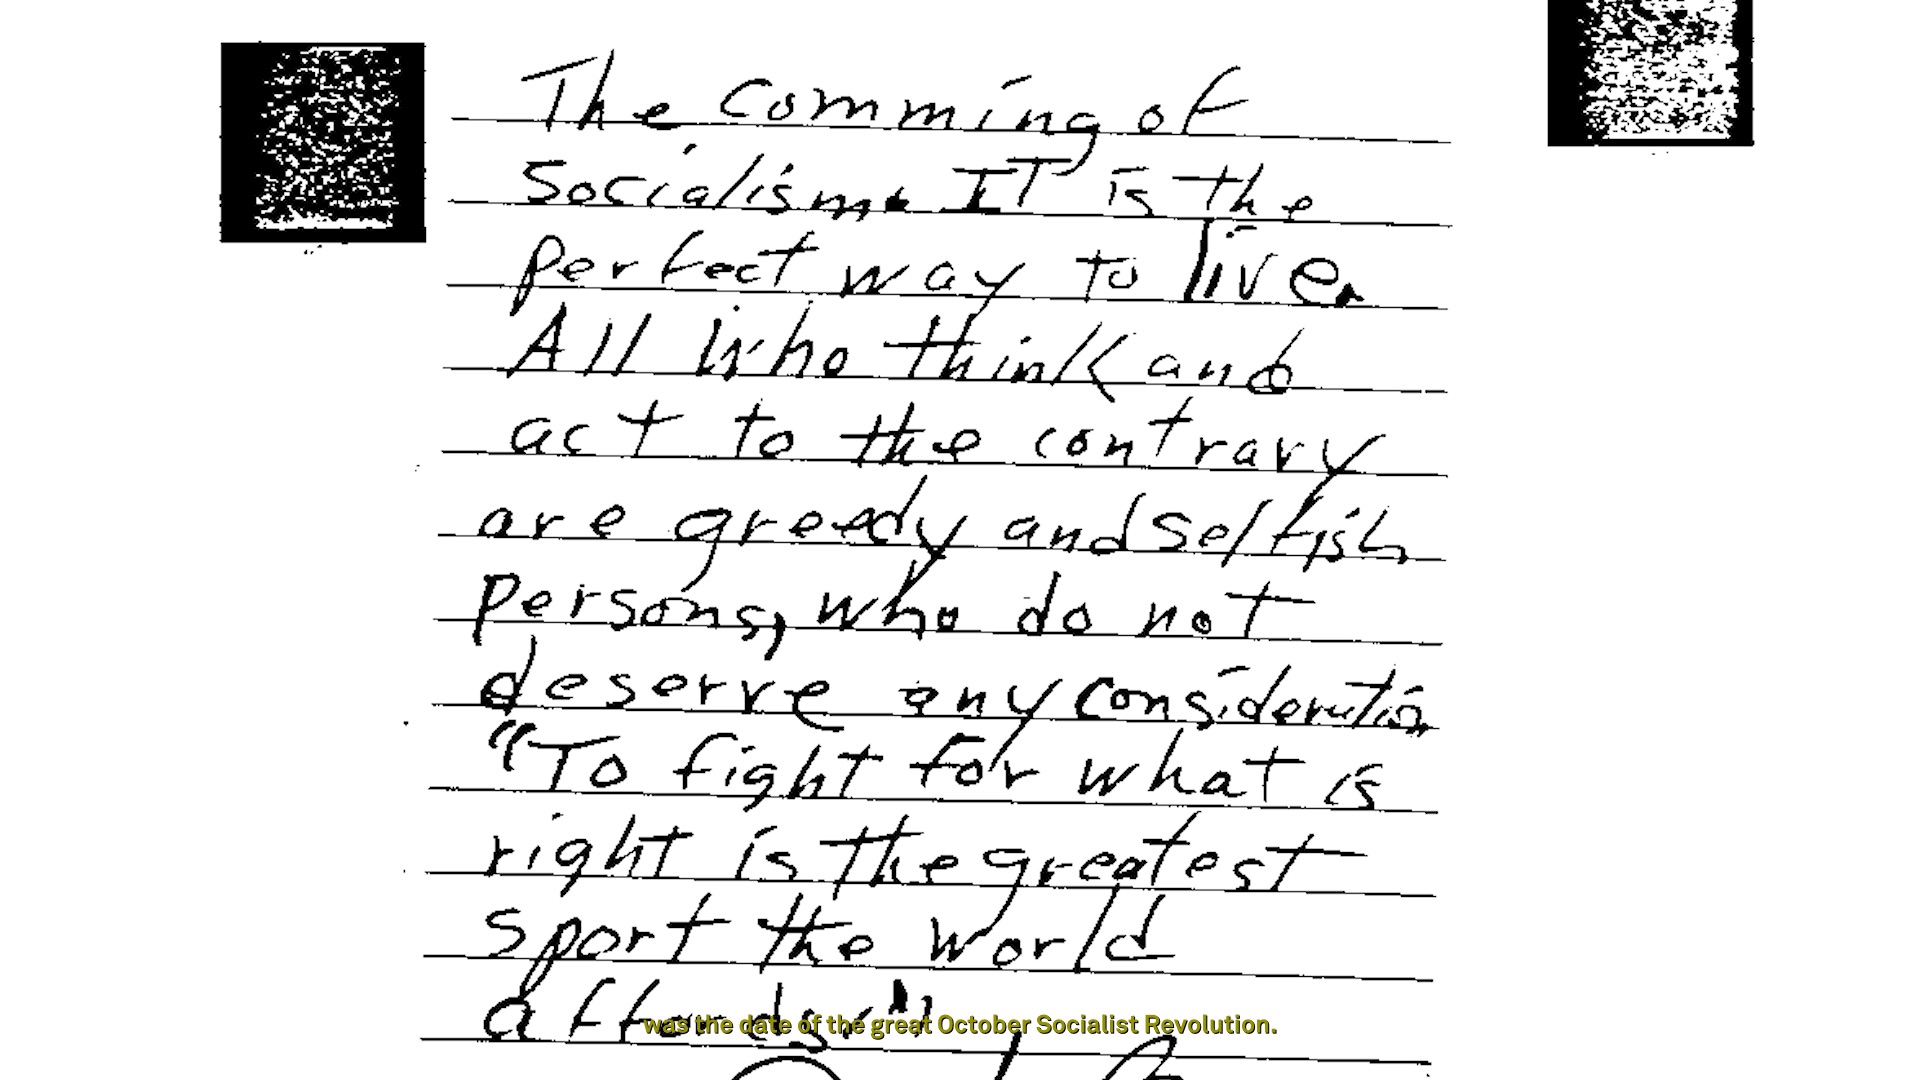 The Comming of
Socialism. IT is the
perfect way to live.
All who think and
act to the contrary
are greedy and selfish
persons, who do not
deserve any consideration
"To fight for what is
right is the greatest
sport the world
affords."
was the date of the great October Socialist Revolution.